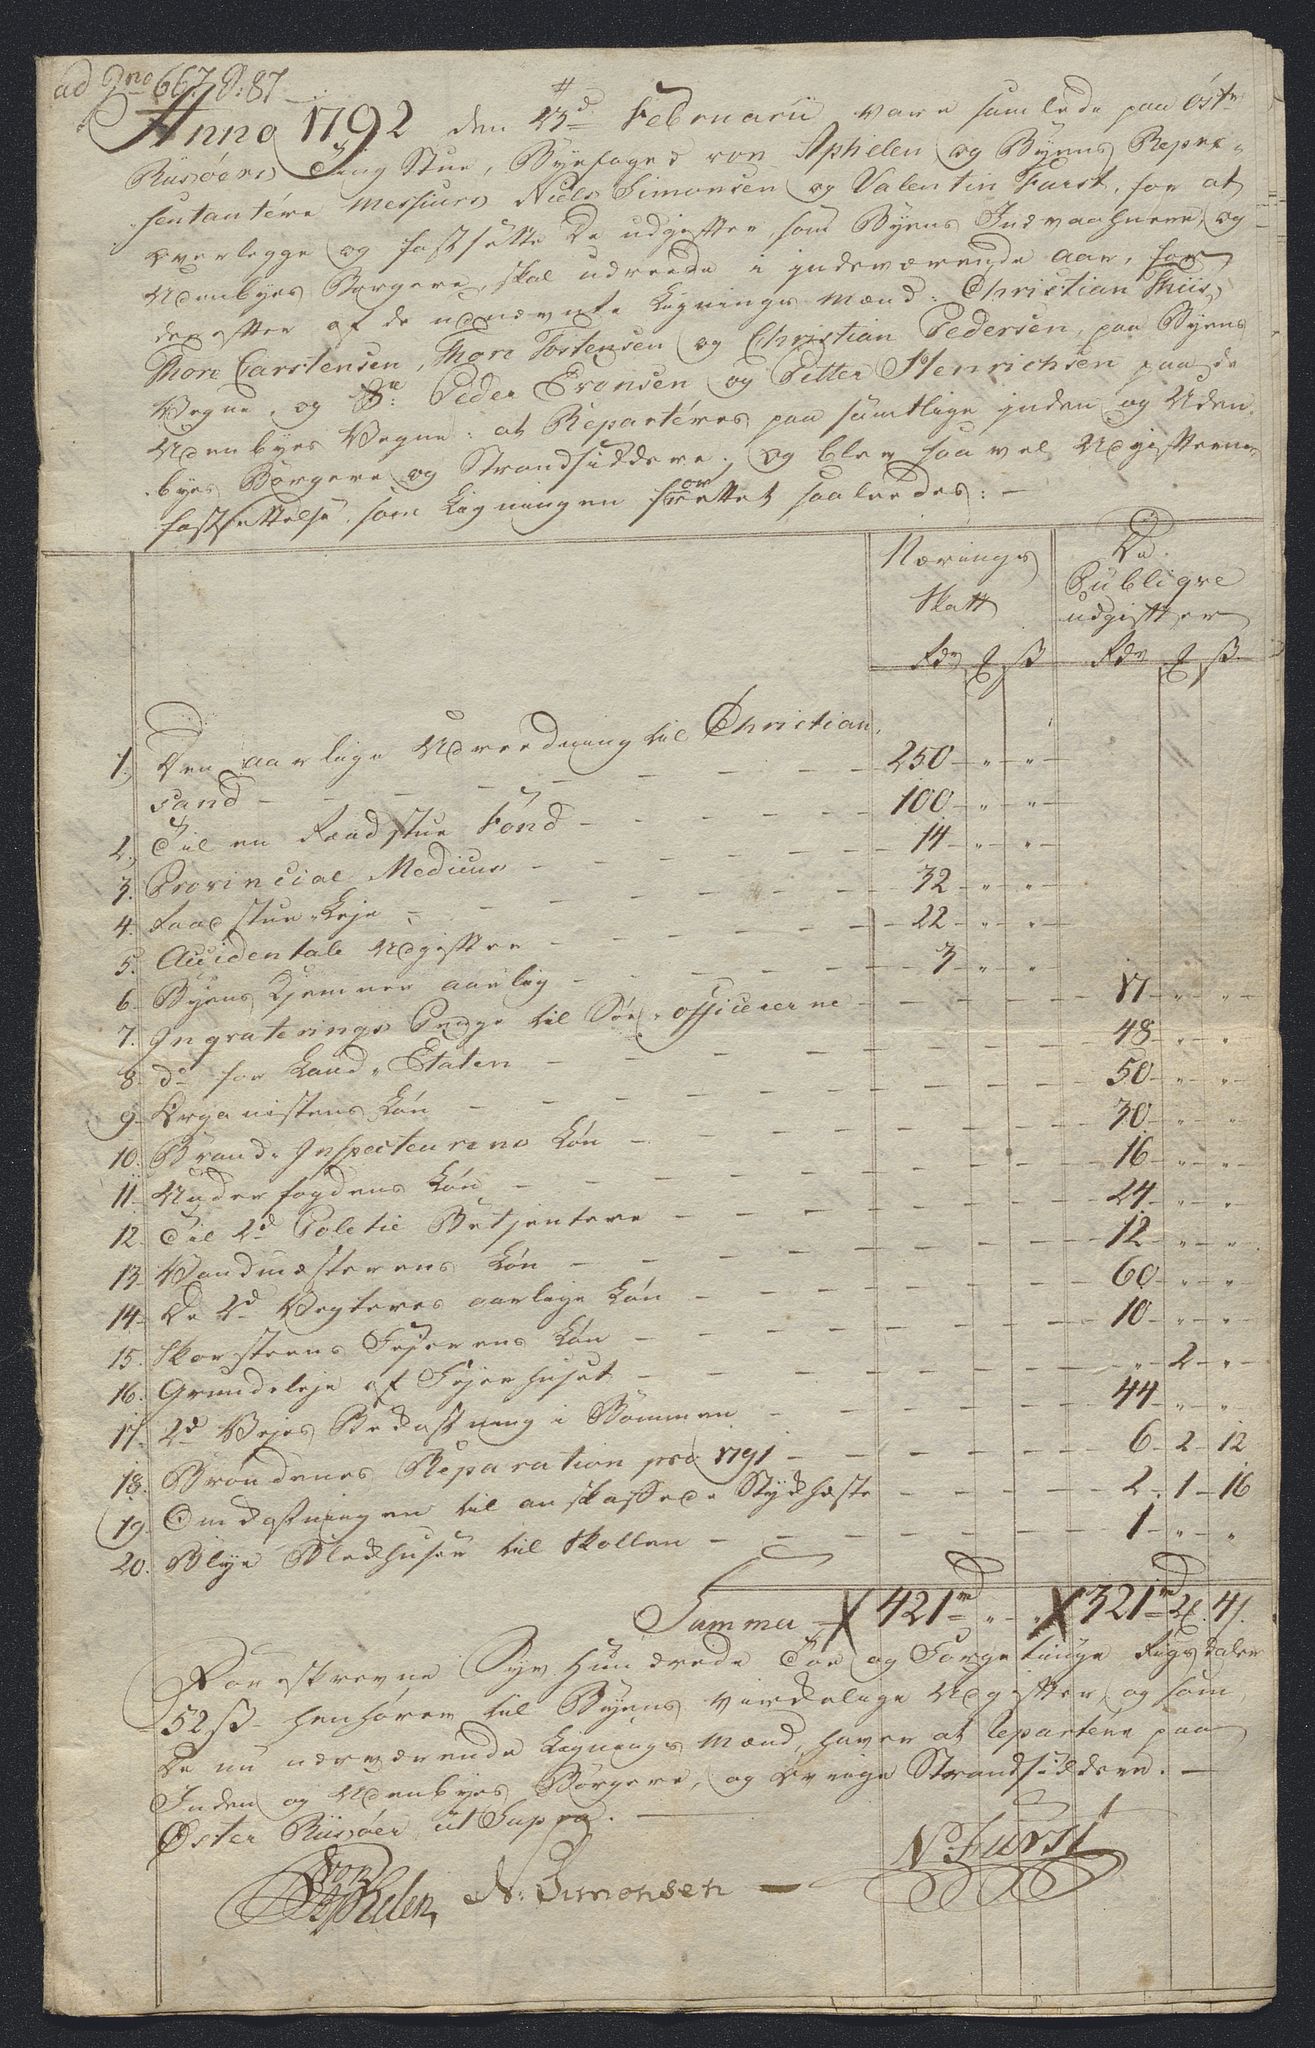 ad No 667. P: 87
Anno 1792 den 23d Februarii vare samlede paa Østr
Riisøers Ting Stue, Byefoged von Aphelen og Byens Repræ-
sentantére Messieurs Niels Simonsen og Valentin Furst, for at
overlegge og fastsette de udgifter, som Byens Indvaahnere, og
Udenbyes Borgere, skal udreede i indeværende Aar, for
derefter af de udnævnte Ligningsmænd: Christian Thiis,
Thore Carstensen, Thore Tostensen og Christian Pedersen, paa Byens
Vegne, og Sr: Peder Eronsen og Petter Henrichsen paa de
Udenbyes Vegne: at Repartéres paa samtlige inden og Uden-
byes Borgere og Strandsiddere; og blev saavel Udgifternes
fastsettelse, som Ligningen forrettet saaledes: —
Nærings De
Skatt Publiqve
udgifter
Rdr ß Rdr ß
1. Den aarlige Udreedning til Christian-
sand — 250 - " - "
2. Til en Raadstue Fond — 100 - " - "
3. Provincial Medicus — 14 - " - "
4. Raadstue Leje — 32 - " - "
5. Accidentale Udgifter — 22 - " - "
6. Byens Kjemner aarlig — 3 - " - "
7. Inqvarterings Penge til Søe-officererne — 17 - " - "
8. do for Land-Etaten — 48 - " - "
9. Organistens Løn — 50 - " - "
10. Brand-Inspecteurens Løn — 30 - " - "
11. Underfogdens Løn — 16 - " - "
12. Til 2d Politie Betjentere — 24 - " - "
13. Vandmesterens Løn — 12 - " - "
14. De 2d Vegteres aarlige Løn — 60 - " - "
15. Skorsteens Fejerens Løn — 10 - " - "
16. Grundeleje af Fejerhuset — " - 2 - "
17. 2d Vejes Bekostning i Bommen — 44 - " - "
18. Brøndenes Reparation pro 1791 — 6 - 2 - 12
19. Omkostningen til anskaffede Stykheste — 2 - 1 - 16
20. Blye til Skollen — 1 - " - "
Summa X 421 - " - " X 321 2 4
Foreskrevne Syv Hundrede Toe og Fyrgetiuge Rigsdaler
52 ß henhører til Byens virkelige Udgifter, og som
de nu nærværende Ligningsmænd, haver at repartere paa
Inden og Udenbyes Borgere, og øvrige Strandsiddere. —
Øster Riisøer ut Supra. —
von Aphelen N: Simonsen — V. Furst